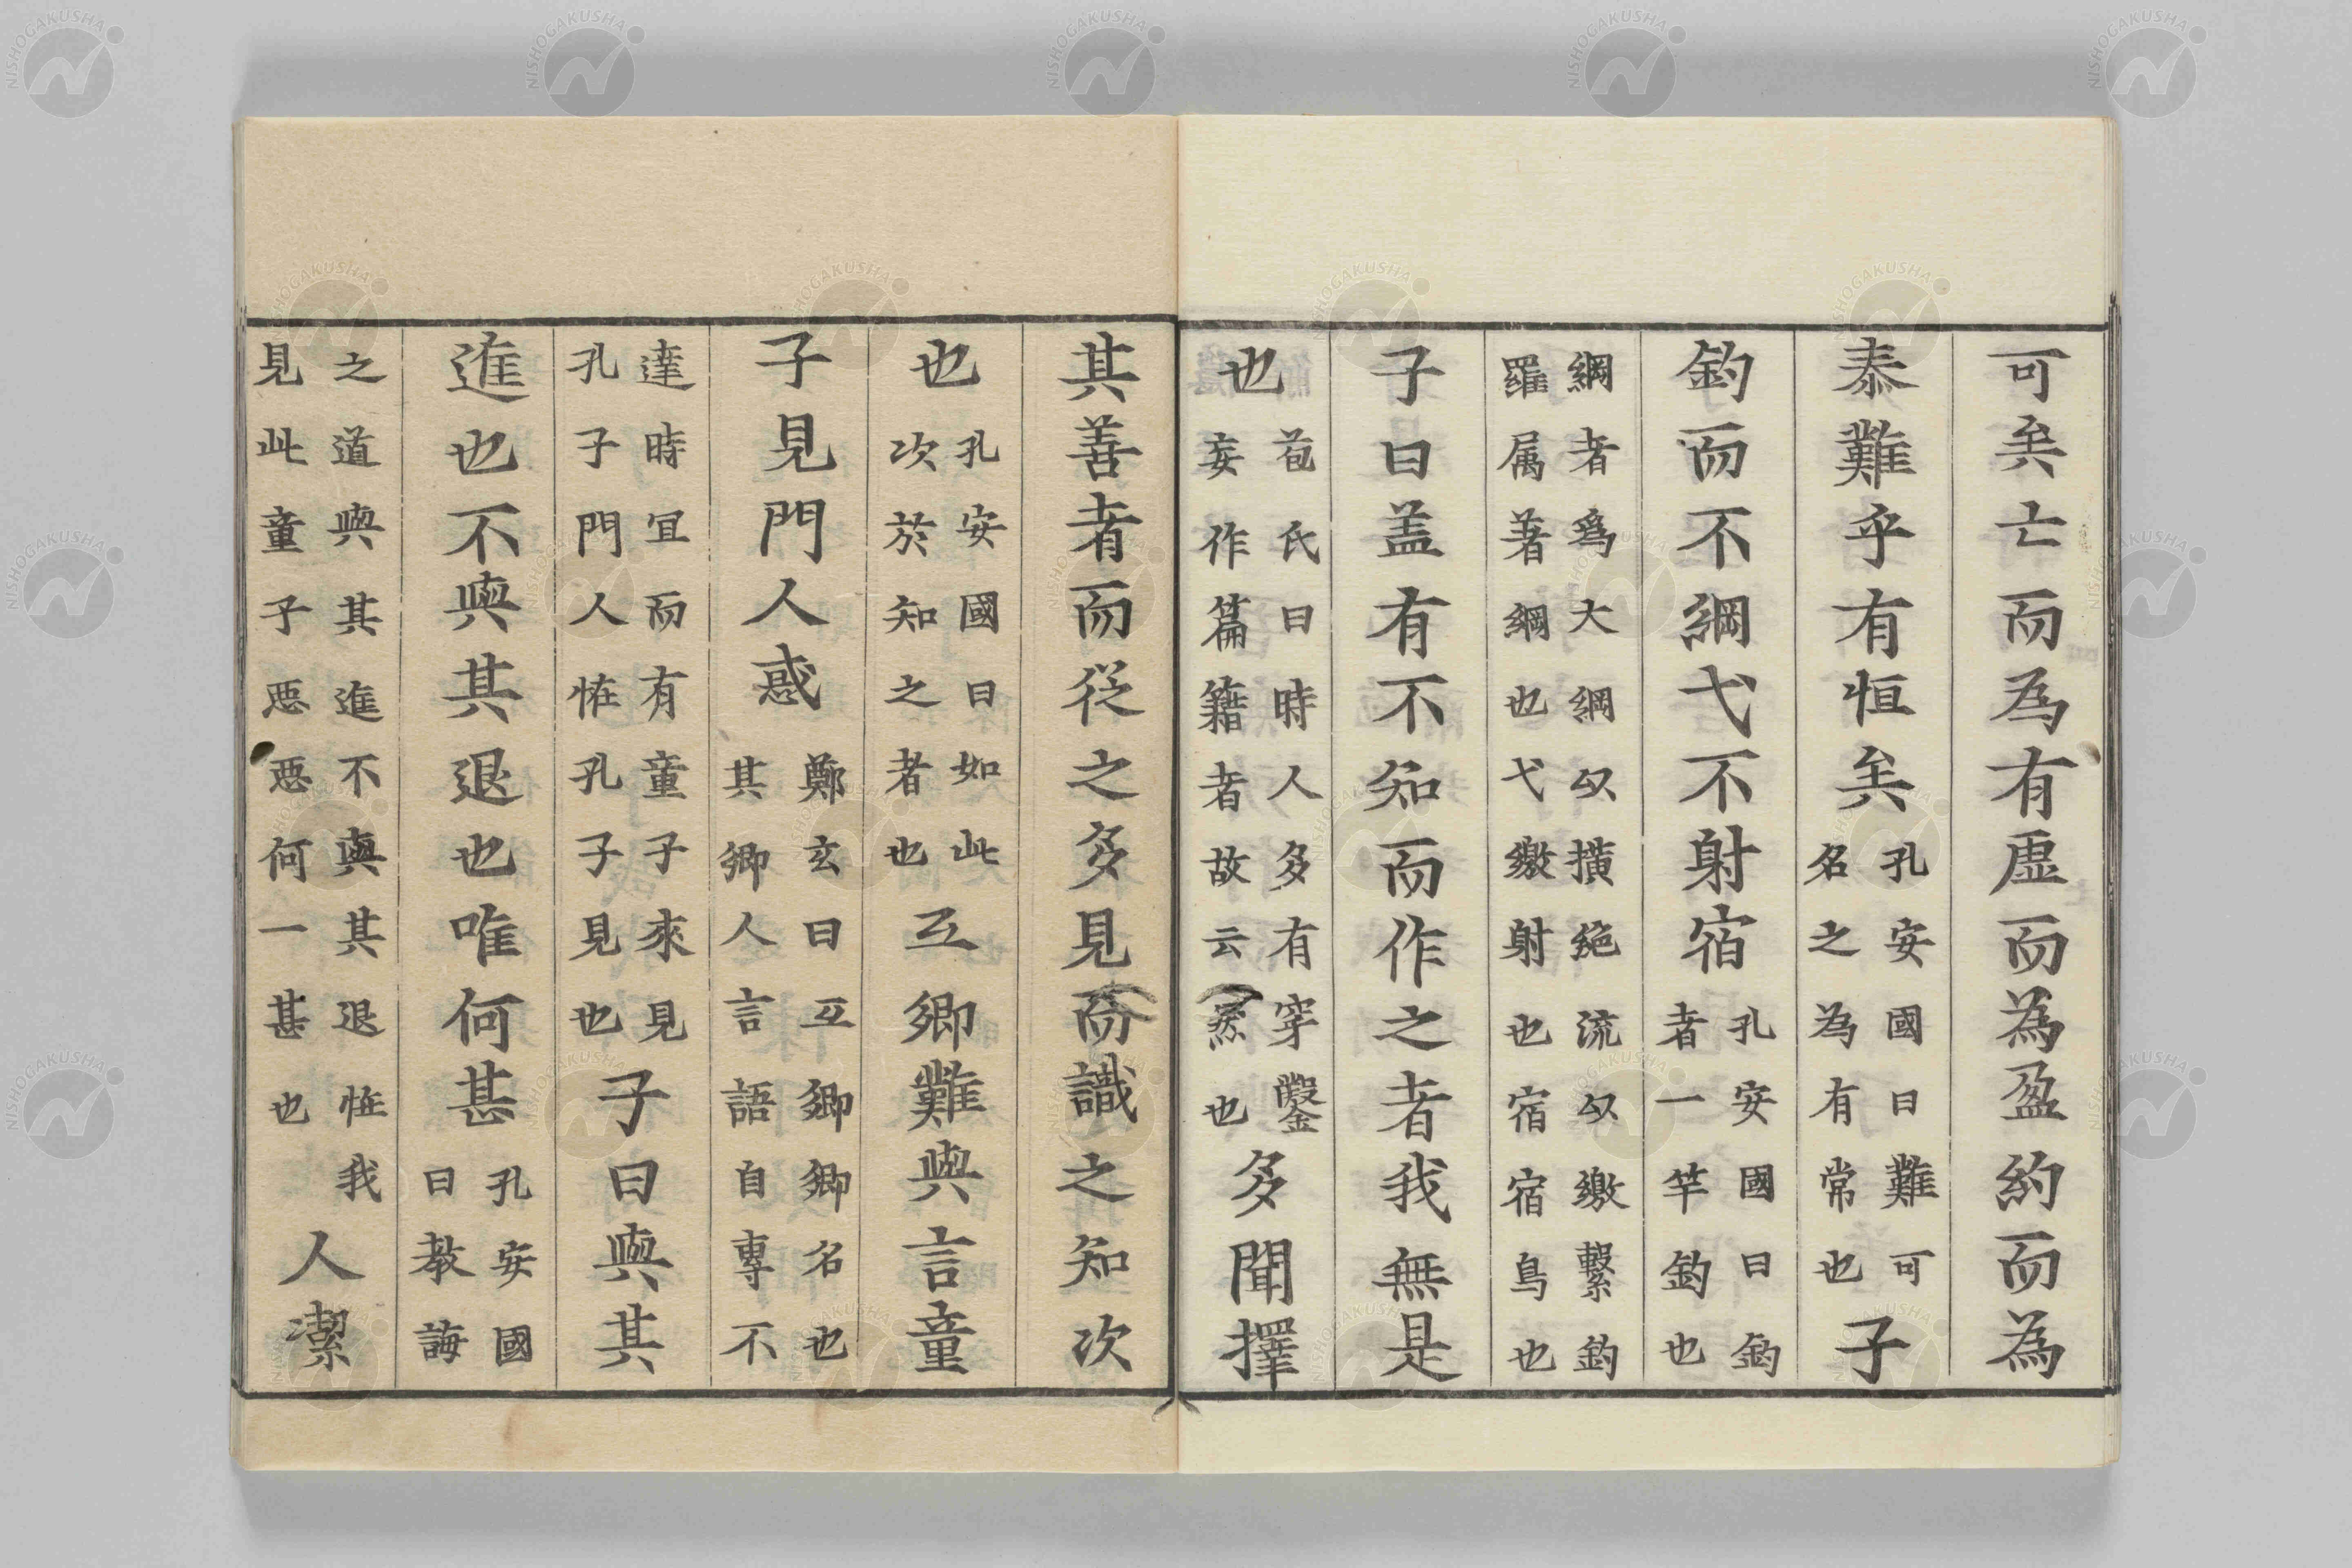 可矣亡而為有虛而為盈約而為
泰難乎有恒矣孔安國曰難可名之為有常也子
釣而不綱弋不射宿孔安國曰釣者一竿釣也
綱者爲大綱以横絶流以繳繫釣羅属著綱也弋繳射也宿宿鳥也
子曰盖有不知而作之者我無是
也苞氏曰時人多有穿鑿妄作篇籍者故云然也多聞擇
其善者而從之多見而識之知次
也孔安國曰如此次於知之者也互鄉難與言童
子見門人惑鄭玄曰互鄉鄉名也其鄉人言語自專不
達時冝而有童子來見孔子門人恠孔子見也子曰與其
進也不與其退也唯何甚孔安國曰教誨
之道與其進不與其退恠我見此童子惡惡何一甚也人潔
NISHOGAKUSHA